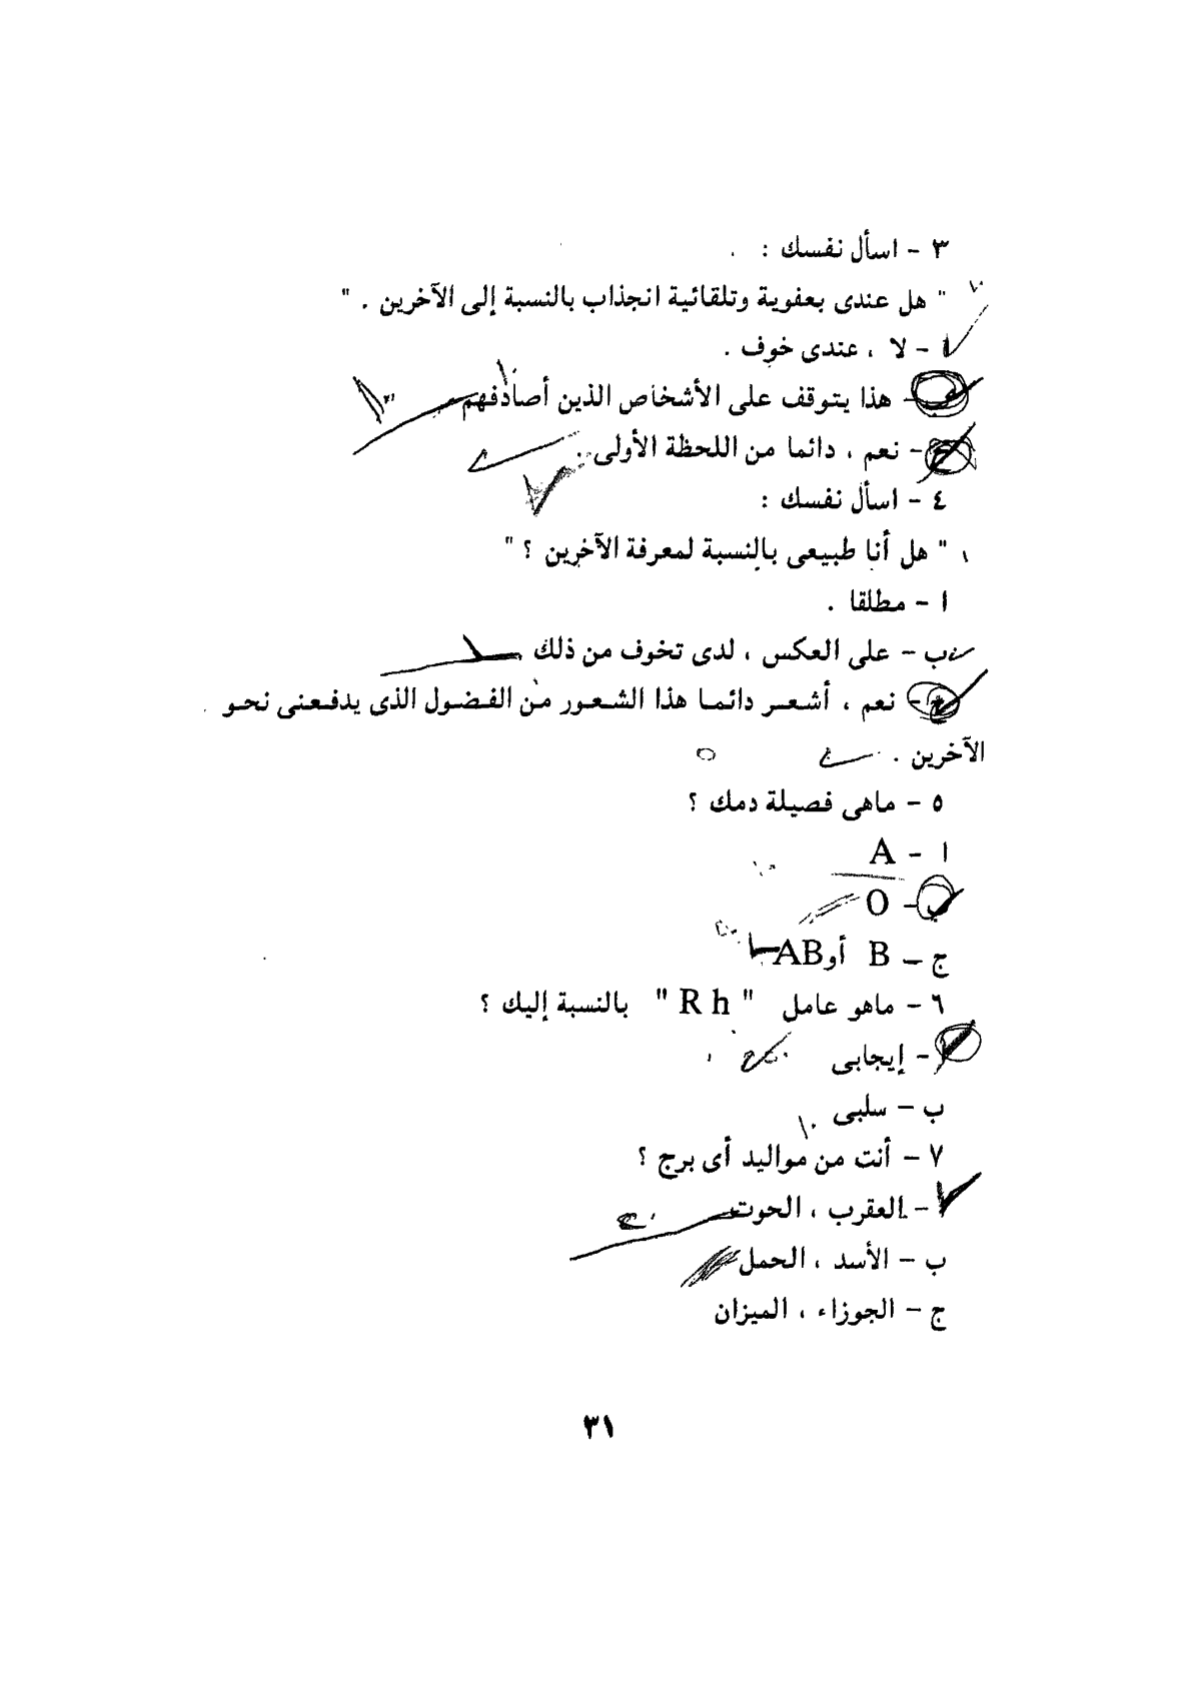 ٣ - اسأل نفسك :
" هل عندى بعفوية وتلقائية انجذاب بالنسبة إلى الآخرين . "
ا - لا ، عندى خوف .
- هذا يتوقف على الأشخاص الذين أصادفهم
ج - نعم ، دائما من اللحظة الأولى .
٤ - اسأل نفسك :
" هل أنا طبيعى بالنسبة لمعرفة الآخرين ؟ "
ا - مطلقا .
ب - على العكس ، لدى تخوف من ذلك
- نعم ، أشعر دائما هذا الشعور من الفضول الذى يدفعنى نحو
الآخرين .
٥ - ماهى فصيلة دمك ؟
ا - A
ب - O
ج - B أو AB
٦ - ماهو عامل " R h " بالنسبة إليك ؟
- إيجابى
ب - سلبى
٧ - أنت من مواليد أى برج ؟
- العقرب ، الحوت
ب - الأسد ، الحمل
ج - الجوزاء ، الميزان
٣١